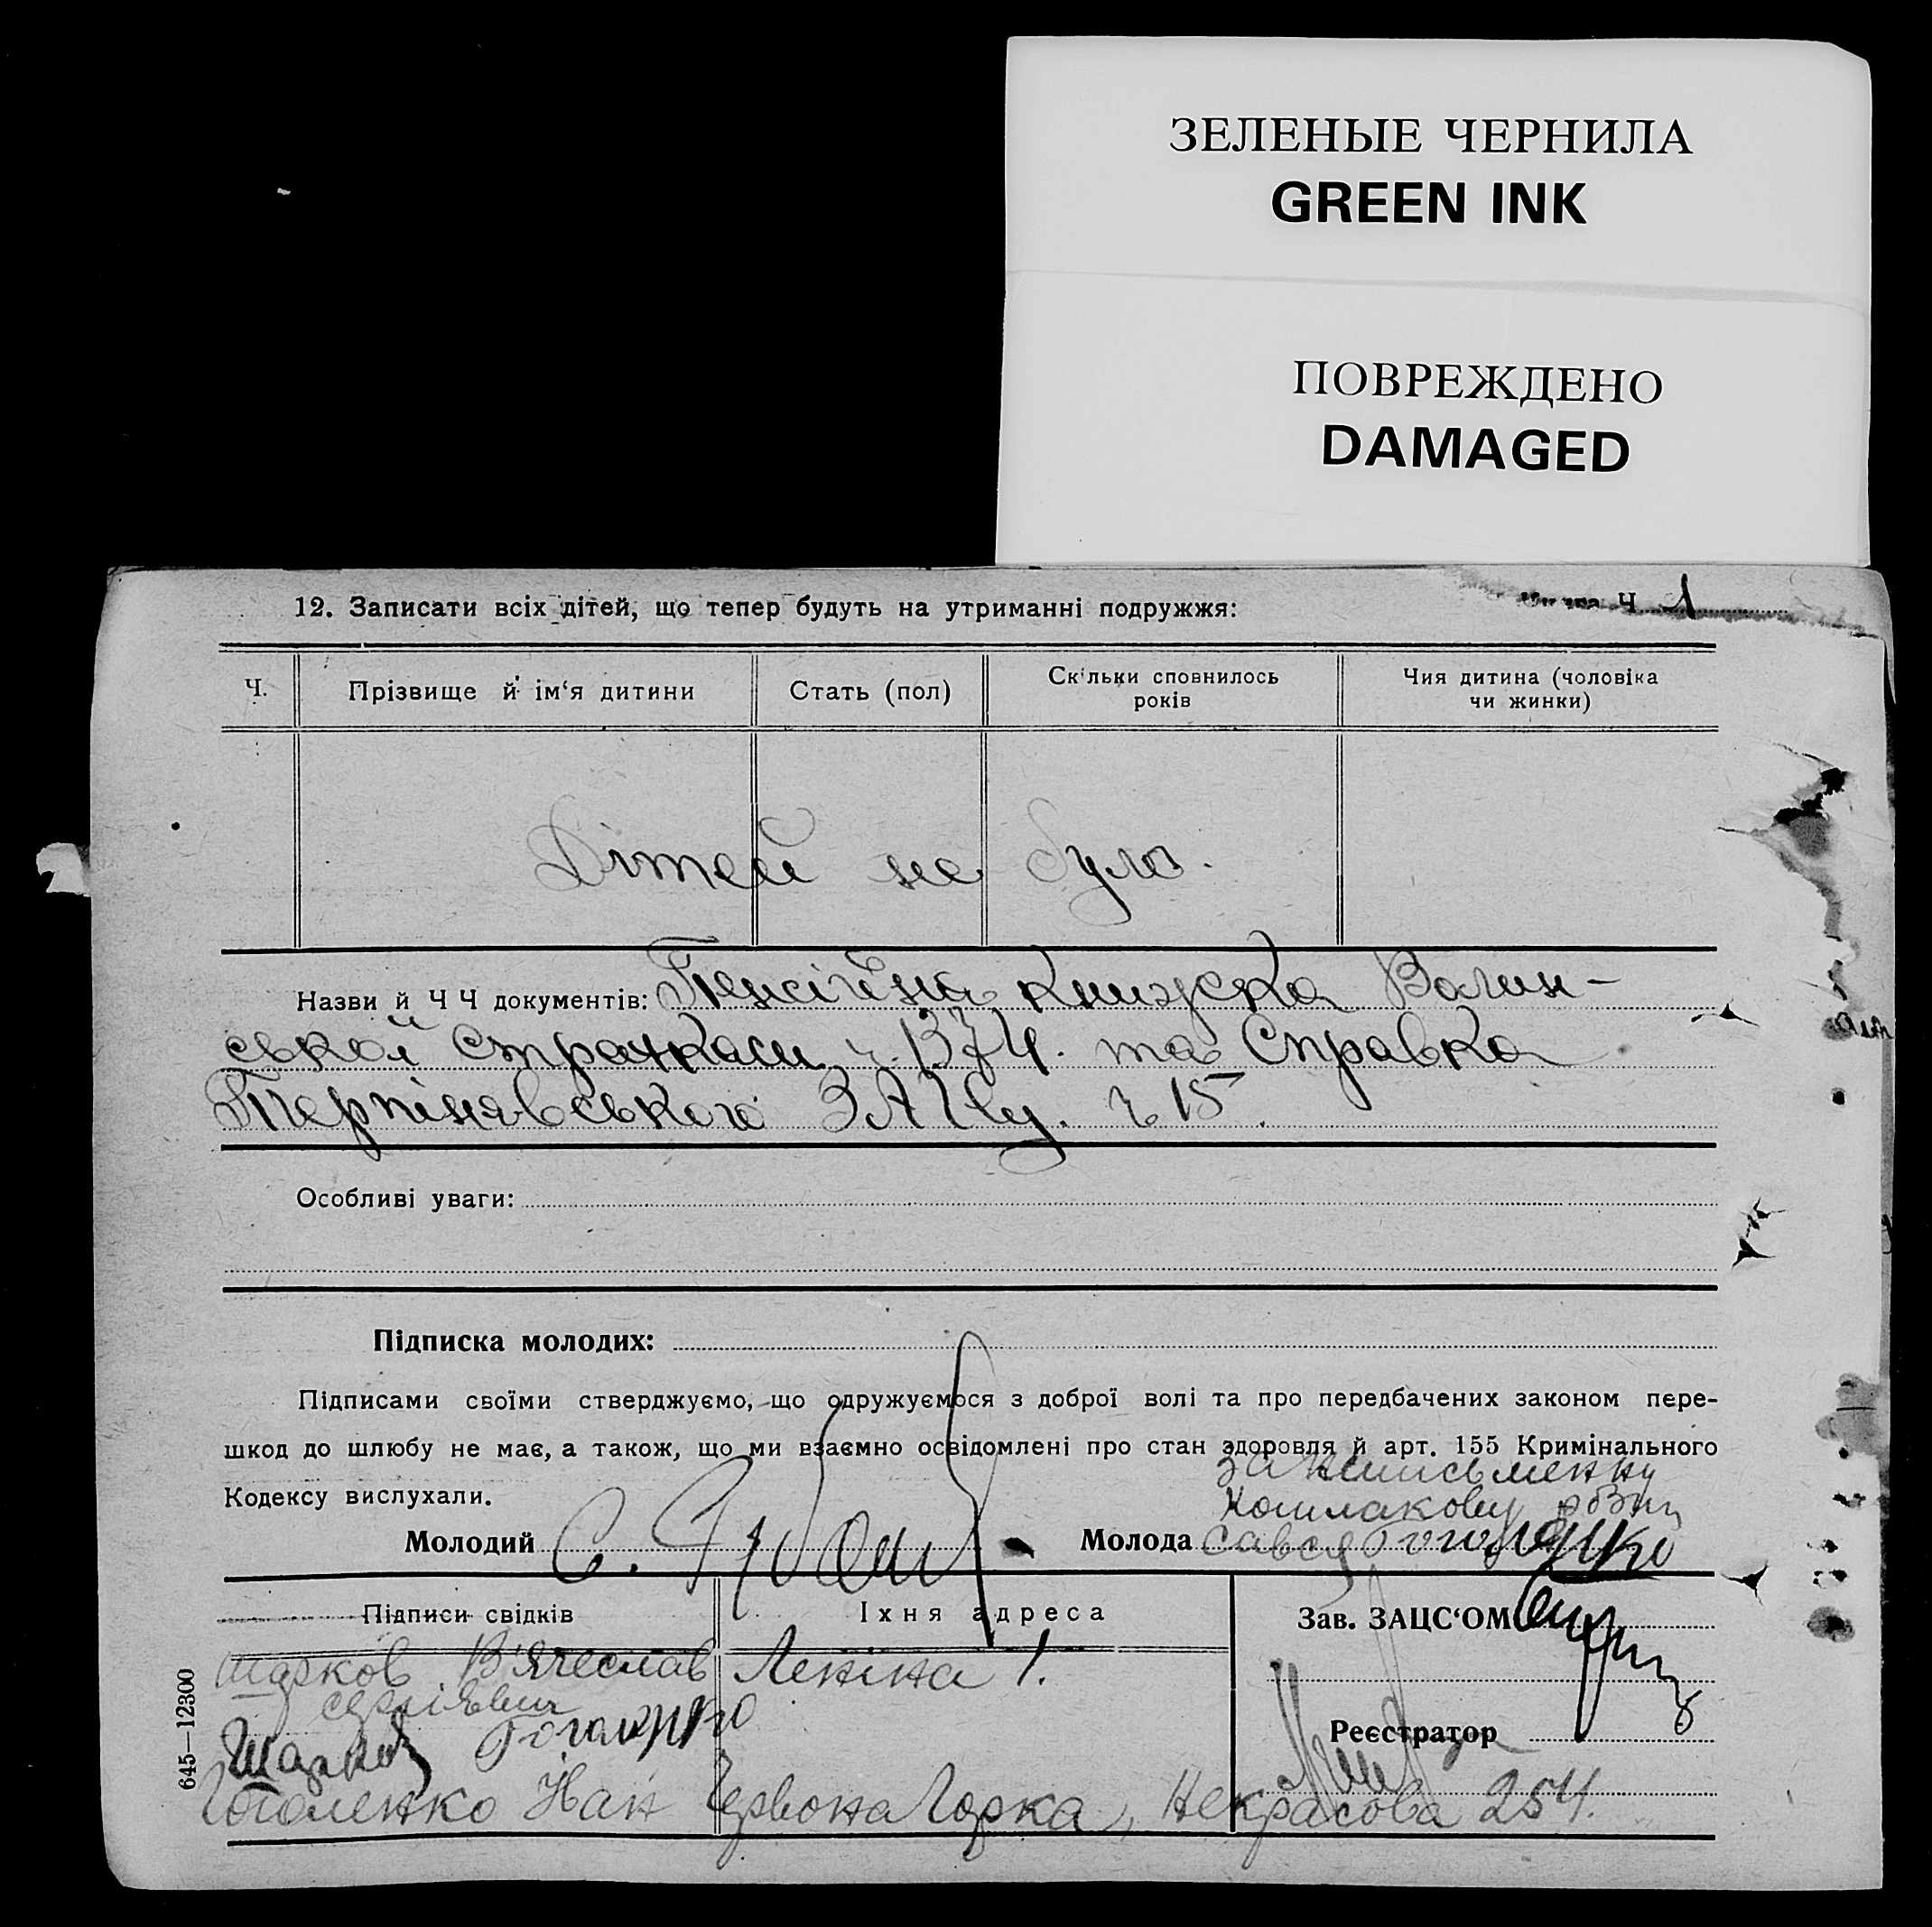 ЗЕЛЕНЫЕ ЧЕРНИЛА
GREEN INK
ПОВРЕЖДЕНО
DAMAGED
Ч. 1
12. Записати всіх дітей, що тепер будуть на утриманні подружжя:
Ч.
Прізвище й ім‘я дитини
Стать (пол)
Скільки сповнилось років
Чия дитина (чоловіка чи жинки)
Дітей не було.
Назви й Ч Ч документів: Пенсійна книжка Волин-
ськой страхкаси ч. 1374. та Справка
Терпінявського ЗАЦСу. ч 15.
Особливі уваги:
Підписка молодих:
Підписами своїми стверджуємо, що одружуємося з доброї волі та про передбачених законом пере-
шкод до шлюбу не має, а також, що ми взаємно освідомлені про стан здоровля й арт. 155 Кримінального
Кодексу вислухали.
за неписьменну
Кошлакову
Молодий С.
Молода
Підписи свідків
Іхня адреса
Зав. ЗАЦС‘ОМ
Шарков В'ячеслав Леніна 1.
Сергієвич
Шарков
Реєстратор
Гоголенко Іван Червона Горка, Некрасова 254.
645—12300